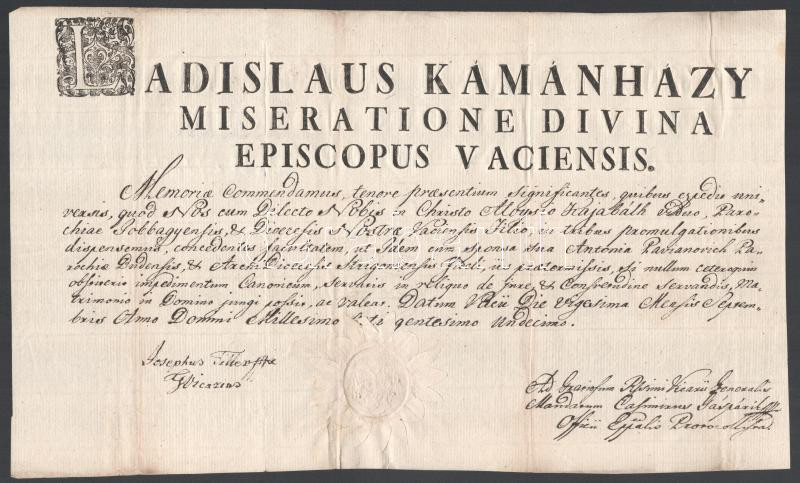 LADISLAUS KÁMÁNHÁZY
MISERATIONE DIVINA
EPISCOPUS VACIENSIS.
Memoriæ Commendamus, tenore præsentium Significantes, quibus expedit uni-
versis, quod Nos cum Dilecto Nobis in Christo Aloysio Paro-
chiae Jobbágyensis, & Dioecesis Nostræ Vaciensis Filio, in tribus promulgationibus
dispensemus, concedentes facultatem, ut Idem cum sponsa sua Antonia Pa-
rochiæ Budensis, & Archi-Dioecesis Strigoniensis ut præmissis, si nullum ceteroquin
obstiterit impedimentum Canonicum, servatis in reliquo de Jure, & Consvetudine Servandis, Ma-
trimonio in Domino jungi possit, ac valeat. Datum Vacii Die Vigesima Mensis Septem-
bris Anno Domini Millesimo gentesimo Undecimo.
Josephus
Vicarius
Ad Gratiosum Rssimi Vicarii Generalis
Mandatum Casimirus Gáspárik
Officii Eppalis